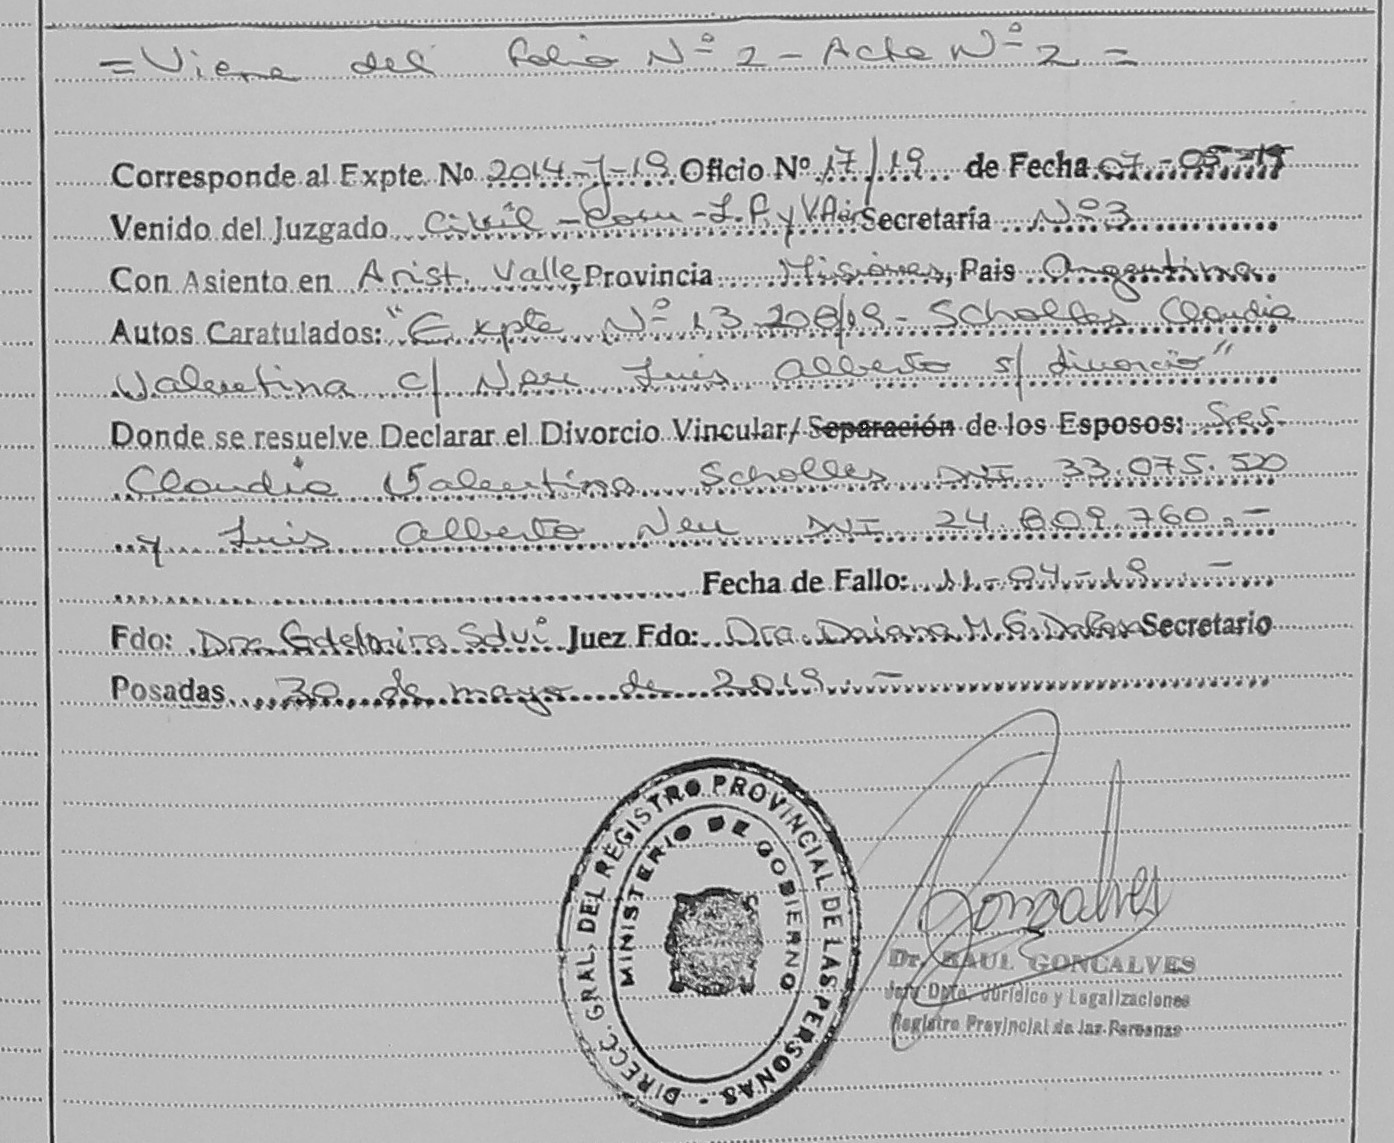 = Viene del folio Nº 2 - Acta Nº 2 =
Corresponde al Expte. Nº 2014-J-19 Oficio Nº 17/19 de Fecha 07-05-19
Venido del Juzgado Civil - Com - L. F. y V. Secretaría Nº 3
Con Asiento en Arist. Valle, Provincia Misiones, Pais Argentina
Autos Caratulados: "Expte Nº 13 208/19 - Scholles Claudia
Valentina c/ Neu Luis Alberto s/ divorcio"
Donde se resuelve Declarar el Divorcio Vincular/ Separación de los Esposos: Sres
Claudia Valentina Scholles DNI 33.075.520
y Luis Alberto Neu DNI 24.609.760.-
Fecha de Fallo: 11-04-19.-
Fdo: Dra. Juez Fdo: Dra. Daiana M. G. Secretario
Posadas 30 de mayo de 2019.-
DIRECC. GRAL. DEL REGISTRO PROVINCIAL DE LAS PERSONAS -
MINISTERIO DE GOBIERNO
Goncalves
Dr. RAUL GONCALVES
Jefe Dpto. Jurídico y Legalizaciones
Registro Provincial de las Personas